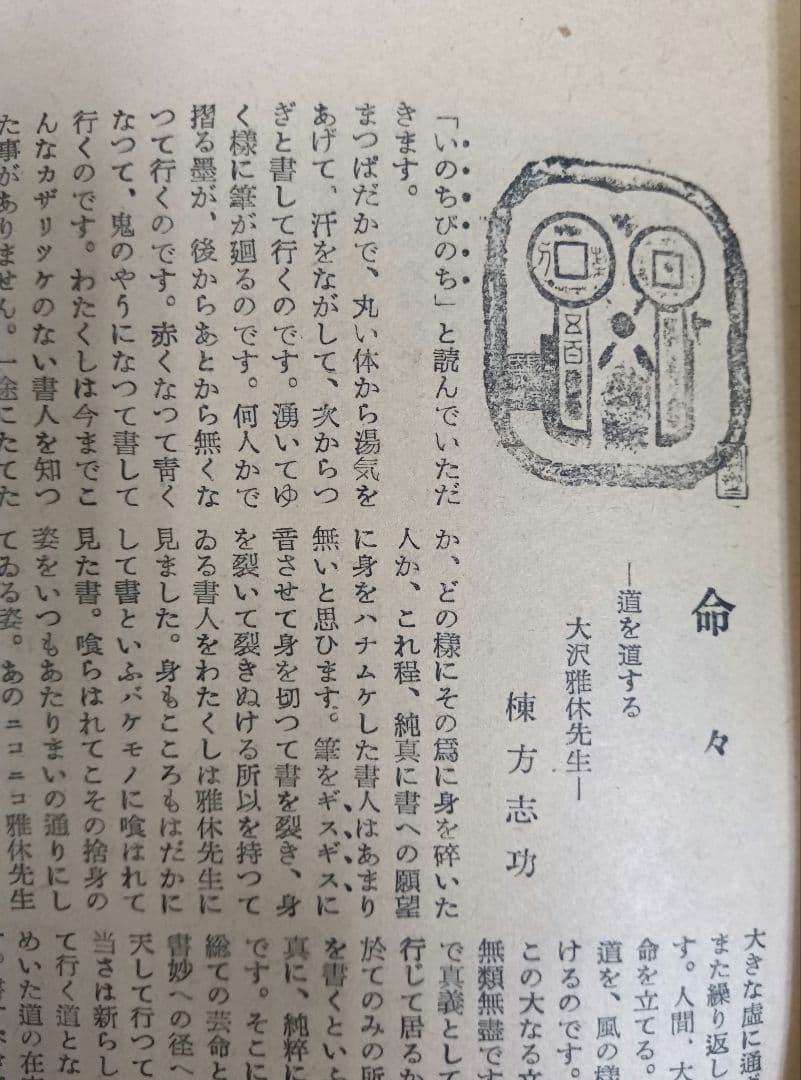 命々
―道を道する
大沢雅休先生―
棟方志功
「いのちびのち」と読んでいただ
きます。
まつぱだかで、丸い体から湯気を
あげて、汗をながして、次からつ
ぎと書して行くのです。湧いてゆ
く様に筆が廻るのです。何人かで
摺る墨が、後からあとから無くな
つて行くのです。赤くなつて青く
なつて、鬼のやうになつて書して
行くのです。わたくしは今までこ
んなカザリツケのない書人を知つ
た事がありません。一途にたてた
か、どの様にその為に身を碎いた
人か、これ程、純真に書への願望
に身をハナムケした書人はあまり
無いと思ひます。筆をギスギスに
音させて身を切つて書を裂き、身
を裂いて裂きぬける所以を持つて
ゐる書人をわたくしは雅休先生に
見ました。身もこころもはだかに
して書といふバケモノに喰はれて
見た書。喰らはれてこその捨身の
姿をいつもあたりまいの通りにし
てゐる姿。あのニコニコ雅休先生
大きな虚に通
また繰り返し
す。人間、大
命を立てる。
道を、風の様
けるのです。
この大なる立
無類無盡です
で真義として
行じて居るか
於てのみの所
を書くといふ
真に、純粋に
です。そこに
総ての芸命と
書妙への径へ
天して行つて
当さは新らし
て行く道とな
めいた道の在